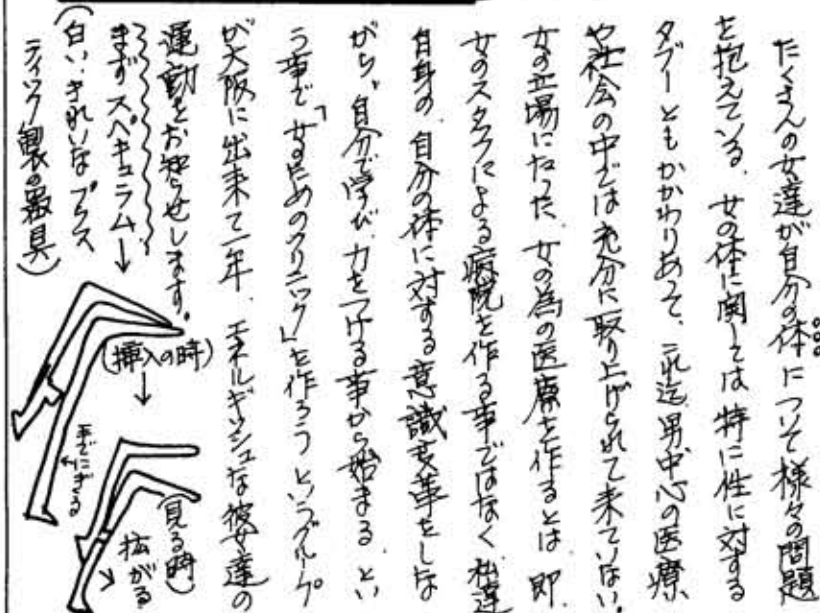 たくさんの女達が自分の体について様々の問題
を抱えている。女の体に関しては特に性に対する
タブーともかかわりあって、これ迄男中心の医療
や社会の中では充分に取り上げられて来ていない。
女の立場にたった、女の為の医療を作るとは、即、
女のスタッフによる病院を作る事ではなく、私達
自身の、自分の体に対する意識変革をしな
がら、自分で学び、力をつける事から始まる、とい
う事で「女のためのクリニック」を作ろうというグループ
が大阪に出来て一年、エネルギッシュな彼女達の
運動をお知らせします。
まずスペキュラム→
(白い、きれいなプラス
ティック製の器具)
(挿入の時)
手でにぎる
(見る時)
拡がる